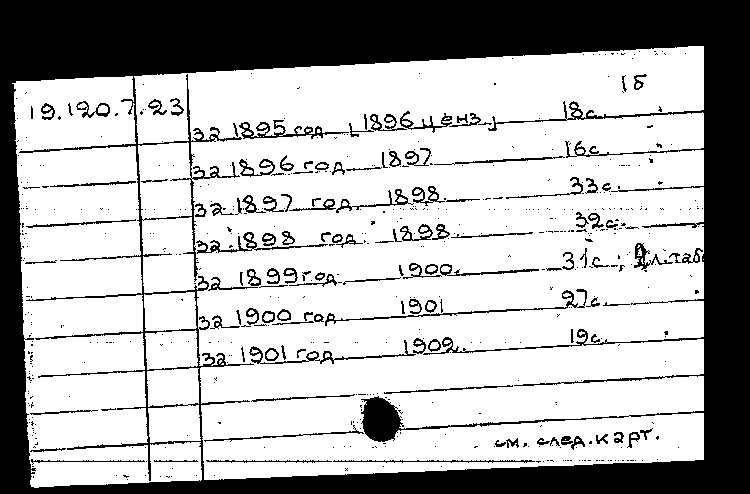 1б
19.120.7.23
за 1895 год [1896 ценз.] 18с.
за 1896 год. 1897 16с.
за 1897 год. 1898. 33с.
за 1898 год. 1898. 32с.
за 1899 год. 1900. 31с.; 2 л. табл
за 1900 год. 1901 27с.
за 1901 год. 1902. 19с.
см. след. карт.